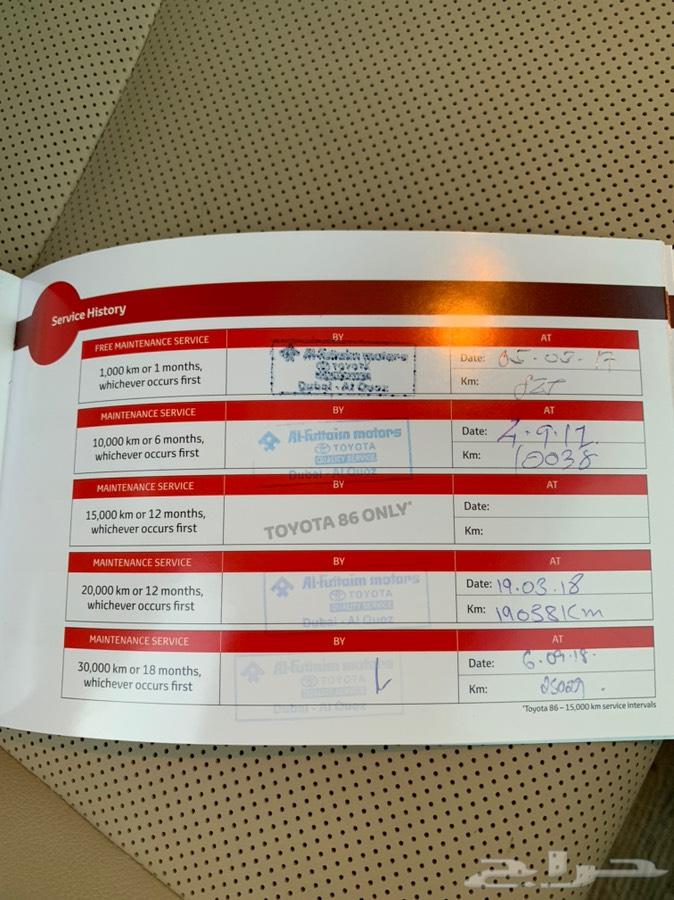 Service History
FREE MAINTENANCE SERVICE BY AT
1,000 km or 1 months, whichever occurs first
Al-Futtaim motors
TOYOTA
Dubai - Al Quoz
Date: 05.05.17
Km:
MAINTENANCE SERVICE BY AT
10,000 km or 6 months, whichever occurs first
Al-Futtaim motors
TOYOTA
QUALITY SERVICE
Dubai - Al Quoz
Date: 4.9.17.
Km: 10038
MAINTENANCE SERVICE BY AT
15,000 km or 12 months, whichever occurs first
TOYOTA 86 ONLY*
Date:
Km:
MAINTENANCE SERVICE BY AT
20,000 km or 12 months, whichever occurs first
Al-Futtaim motors
TOYOTA
QUALITY SERVICE
Dubai - Al Quoz
Date: 19.03.18
Km: 19038Km
MAINTENANCE SERVICE BY AT
30,000 km or 18 months, whichever occurs first
Al-Futtaim motors
TOYOTA
QUALITY SERVICE
Dubai - Al Quoz
Date: 6.09.18.
Km:
*Toyota 86 – 15,000 km service intervals
حراج